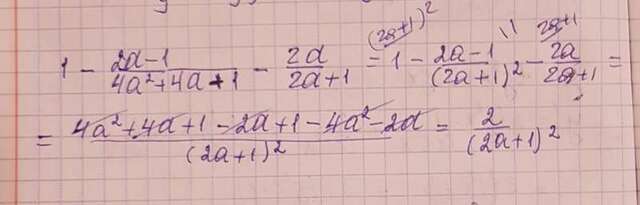 1 - \frac{2a-1}{4a^2+4a+1} - \frac{2a}{2a+1} = \overset{(2a+1)^2}{1} - \overset{1}{\frac{2a-1}{(2a+1)^2}} - \overset{2a+1}{\frac{2a}{2a+1}} =
= \frac{4a^2+4a+1-2a+1-4a^2-2a}{(2a+1)^2} = \frac{2}{(2a+1)^2}